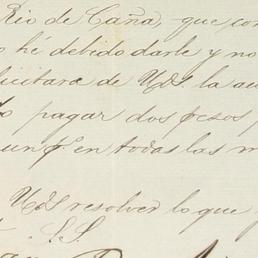 Rio de Caña, que con
hé debido darle y no
licitara de Uds. la au
pagar dos pesos p
un en todas las m
Uds resolver lo que
S. S.